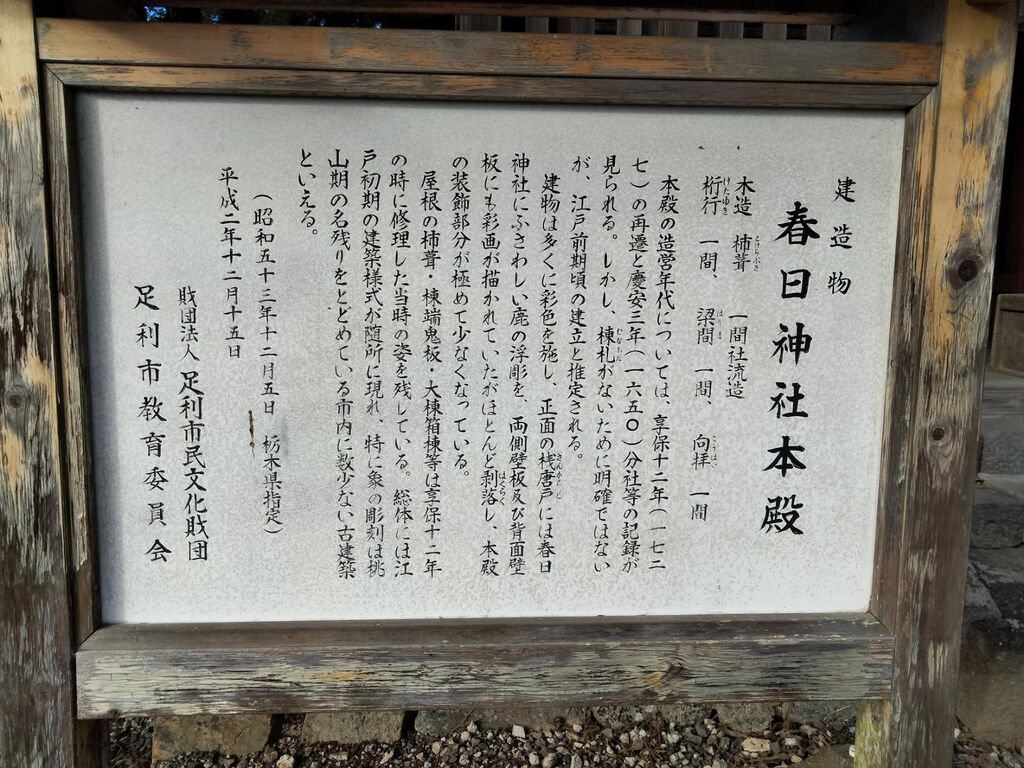 建造物
春日神社本殿
木造 柿葺 一間社流造
桁行 一間、 梁間 一間、 向拝 一間
本殿の造営年代については、享保十二年(一七二
七)の再遷と慶安三年(一六五〇)分社等の記録が
見られる。しかし、棟札がないために明確ではない
が、江戸前期頃の建立と推定される。
建物は多くに彩色を施し、正面の桟唐戸には春日
神社にふさわしい鹿の浮彫を、両側壁板及び背面壁
板にも彩画が描かれていたがほとんど剥落し、本殿
の装飾部分が極めて少なくなっている。
屋根の柿葺・棟端鬼板・大棟箱棟等は享保十二年
の時に修理した当時の姿を残している。総体には江
戸初期の建築様式が随所に現れ、特に象の彫刻は桃
山期の名残りをとどめている市内に数少ない古建築
といえる。
(昭和五十三年十二月五日 栃木県指定)
平成二年十二月十五日
財団法人 足利市民文化財団
足利市教育委員会